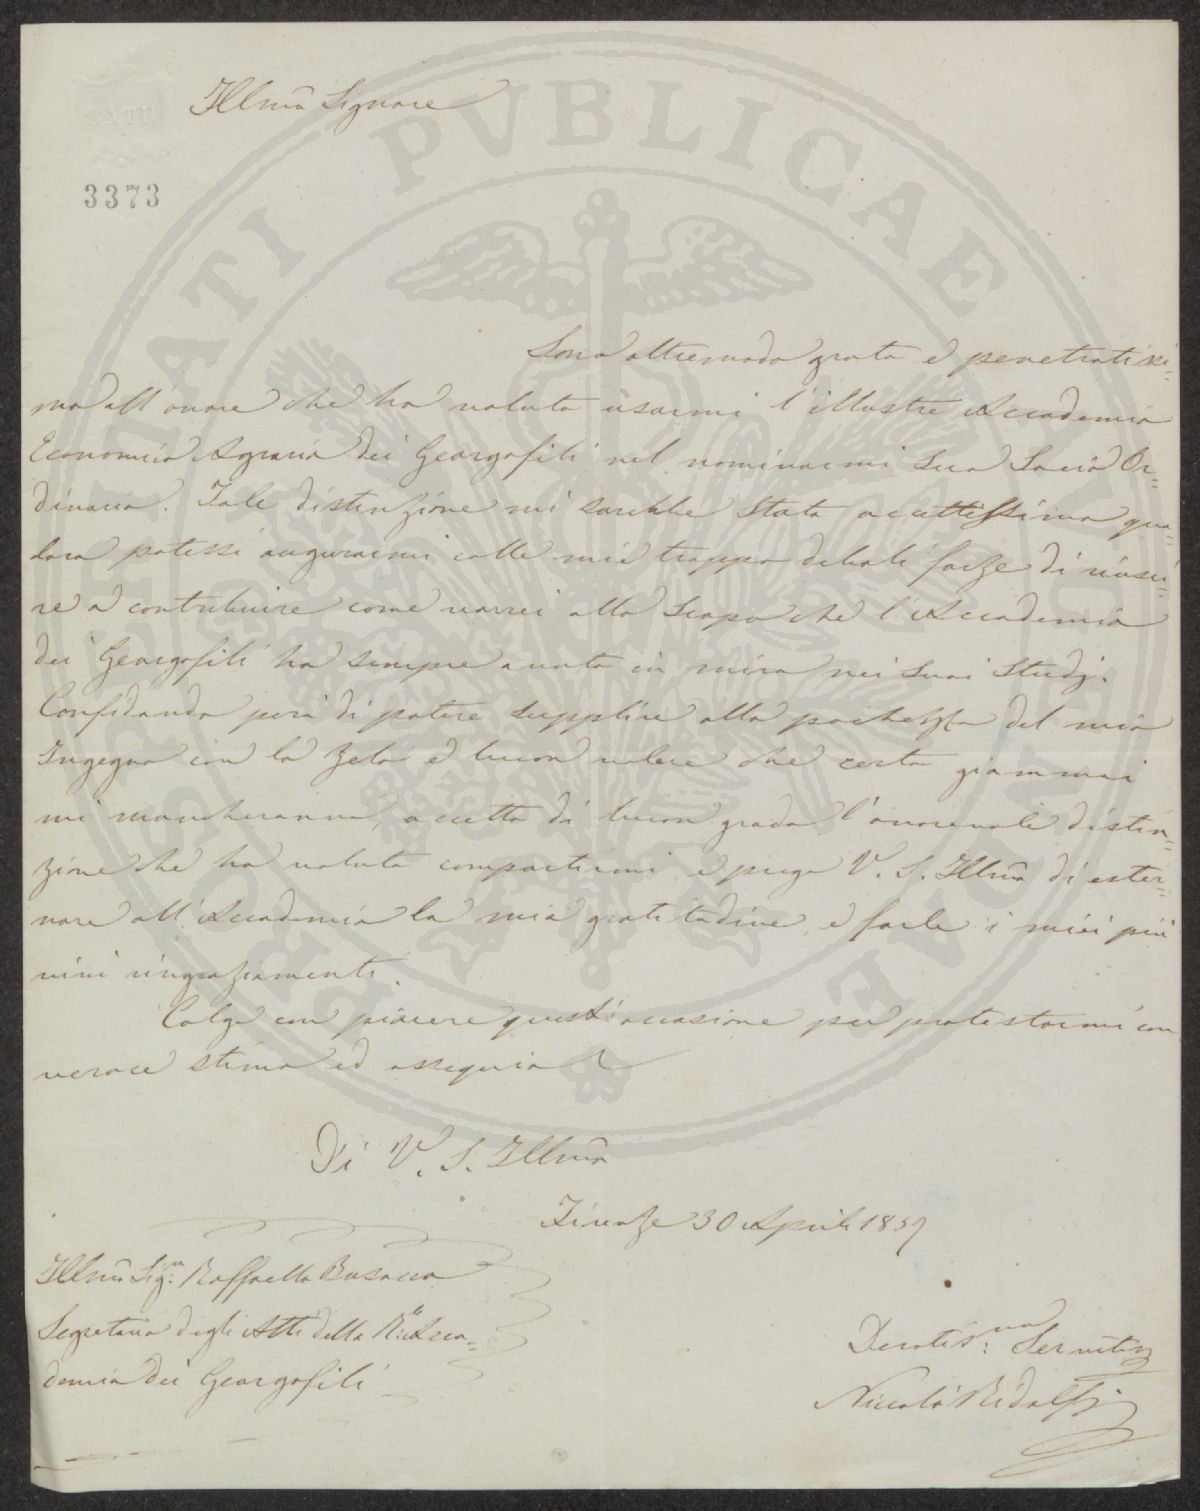 BATH
Illmo Signore
3373
PROSPERITATI PUBLICAE AUGENDAE
Sono oltremodo grato e penetratissi-
mo all'onore che ha voluto usarmi l'illustre Accademia
Economico Agraria dei Georgofili nel nominarmi suo Socio Or-
dinario. Tale distinzione mi sarebbe stata accettissima qua-
lora potessi augurarmi colle mie troppo deboli forze di riusci-
re a contribuire come vorrei allo scopo che l'Accademia
dei Georgofili ha sempre avuto in mira nei suoi studj.
Confidando però di potere supplire alla pochezza del mio
Ingegno con lo zelo e buon volere che certo giammai
mi mancheranno, accetto di buon grado l'onorevole distin-
zione che ha voluto compartirmi, e prego V. S. Illma di ester-
nare all'Accademia la mia gratitudine, e farle i miei più
vivi ringraziamenti.
Colgo con piacere quest'occasione per protestarmi con
verace stima ed ossequio
Di V. S. Illma
Firenze 30 Aprile 1857
Illmo Sigr. Raffaello Busacca
Segretario degli Atti della R. Acca-
demia dei Georgofili
Devotis:mo Servitore
Niccolò Ridolfi